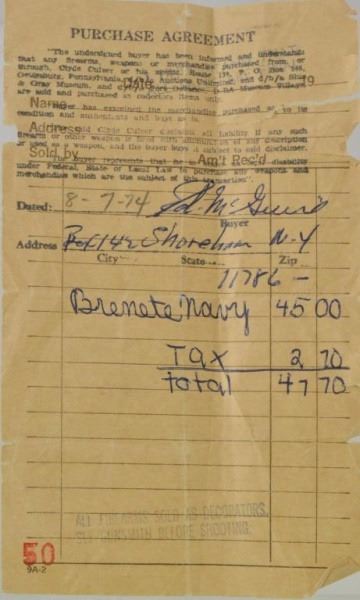 PURCHASE AGREEMENT
"The undersigned buyer has been informed and understands
that any firearms, weapons or merchandise purchased from, or
through, Clyde Culver or his agents, Route 134, P. O. Box
Gettysburg, Pennsylvania, Auctions Unlimited, and d/b/a Blue
& Gray Museum, and Museum Village
are sold and purchased as decorator items only.
Date 19
Name
Buyer has examined the merchandise purchased as to its
condition and authenticity and buys as is
Address
said Clyde Culver disclaim all liability if any such
firearm or other weapon is of any description
or used as a weapon, and the buyer buys it subject to said disclaimer.
Sold by Am't Rec'd
buyer represents that he is disability
under Federal, State or Local Law to purchase any weapons and
merchandise which are the subject of this transaction".
Dated: 8-7-74 Ed McGuire
Buyer
Address Box 142 Shoreham N-Y
City State Zip
11786 -
Brenete Navy 45 00
Tax 2 70
total 47 70
ALL FIREARMS SOLD AS DECORATORS.
SEE GUNSMITH BEFORE SHOOTING.
50
9A-2